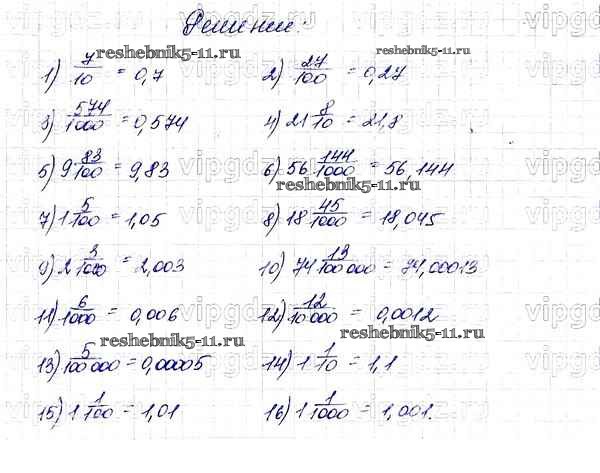 Решение:
1) 7/10 = 0,7 2) 27/100 = 0,27
3) 574/1000 = 0,574 4) 21 8/10 = 21,8
5) 9 83/100 = 9,83 6) 56 144/1000 = 56,144
7) 1 5/100 = 1,05 8) 18 45/1000 = 18,045
9) 2 3/1000 = 2,003 10) 74 13/100 000 = 74,00013
11) 6/1000 = 0,006 12) 12/10 000 = 0,0012
13) 5/100 000 = 0,00005 14) 1 1/10 = 1,1
15) 1 1/100 = 1,01 16) 1 1/1000 = 1,001.
reshebnik5-11.ru
reshebnik5-11.ru
reshebnik5-11.ru
reshebnik5-11.ru
reshebnik5-11.ru
vipgdz.ru